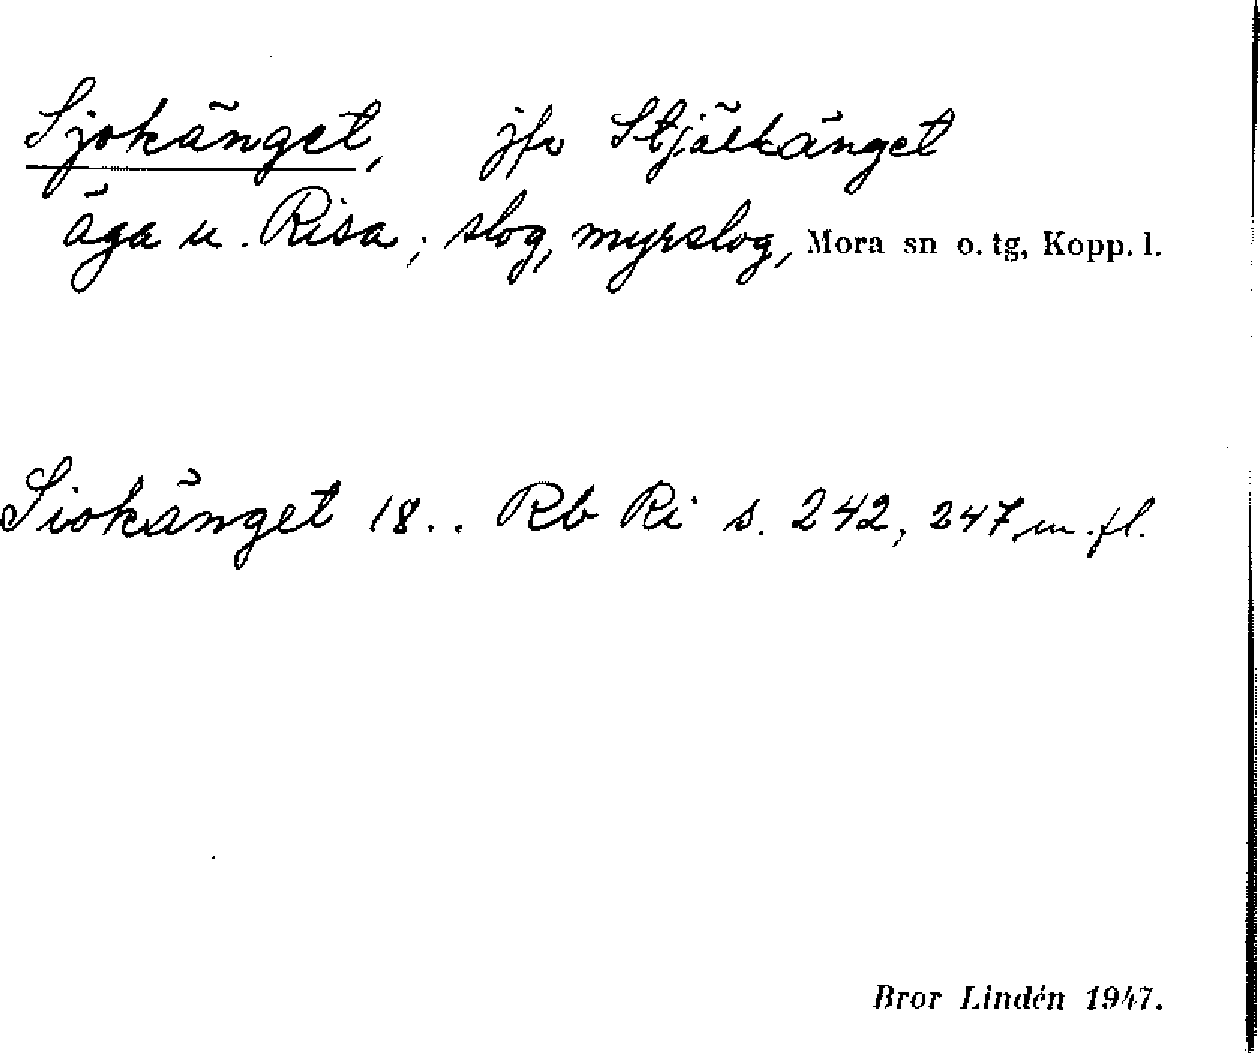 Sjokänget, jfr Stjälkänget
äga u. Risa; slog, myrslog, Mora sn o. tg, Kopp. l.
Siokänget 18.. Rb Ri s. 242, 247 m.fl.
Bror Lindén 1947.